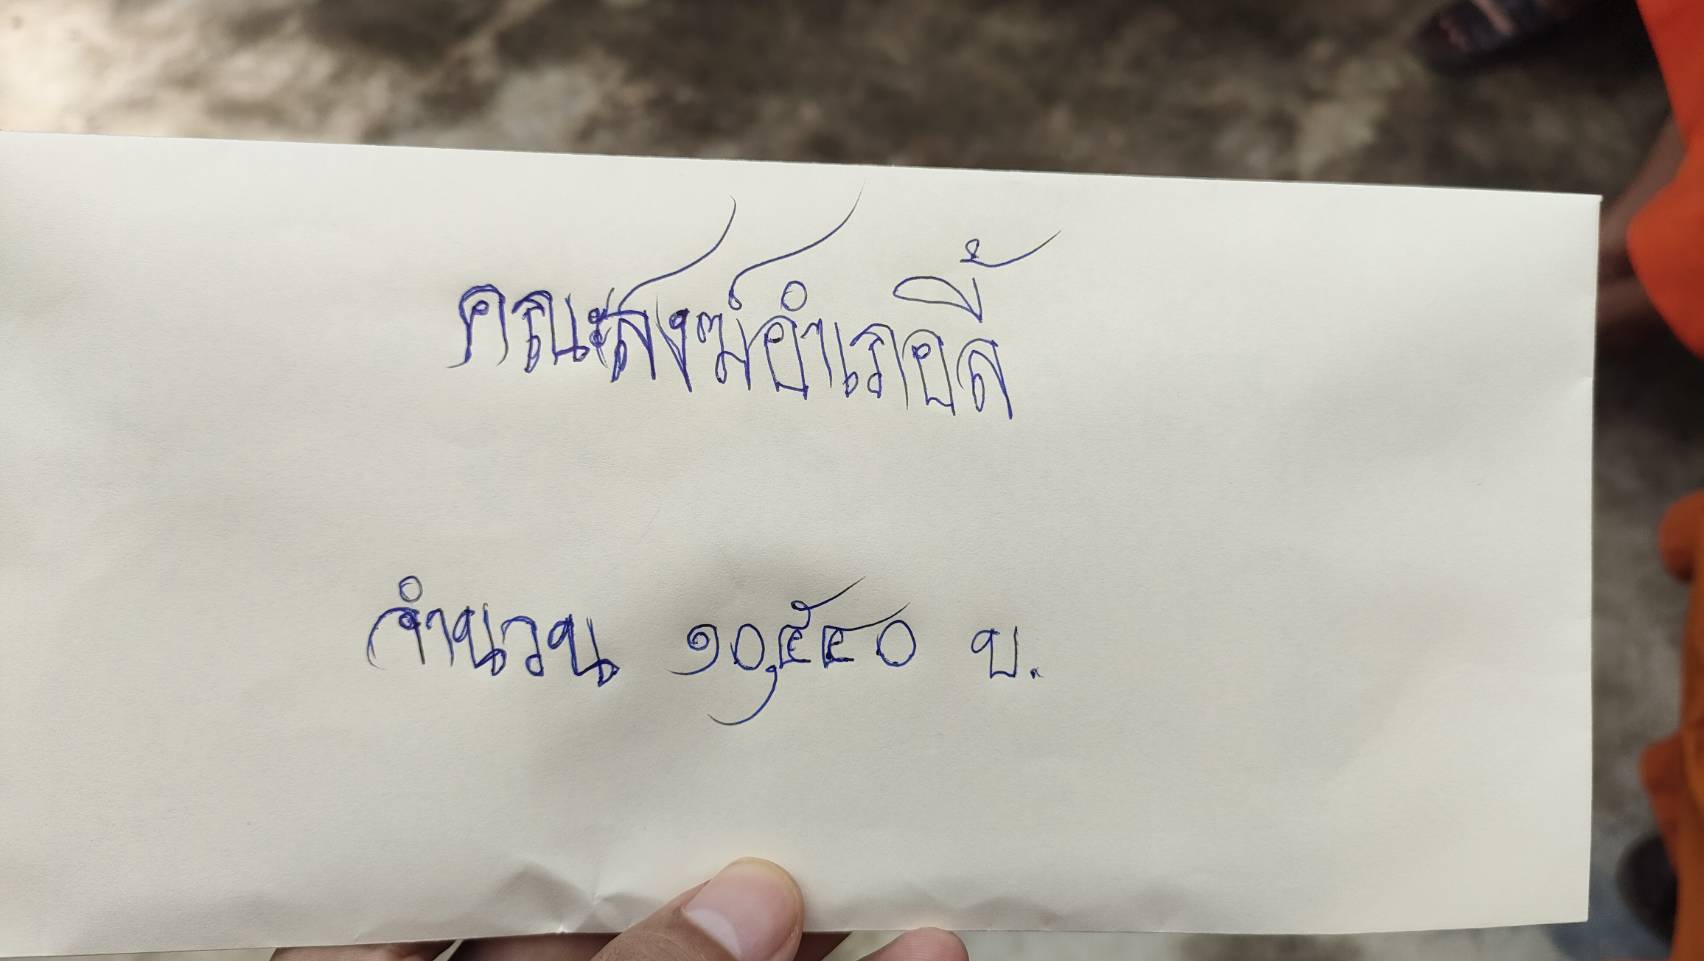 คณะสงฆ์อำเภอลี้
จำนวน ๑๐,๕๔๐ บ.